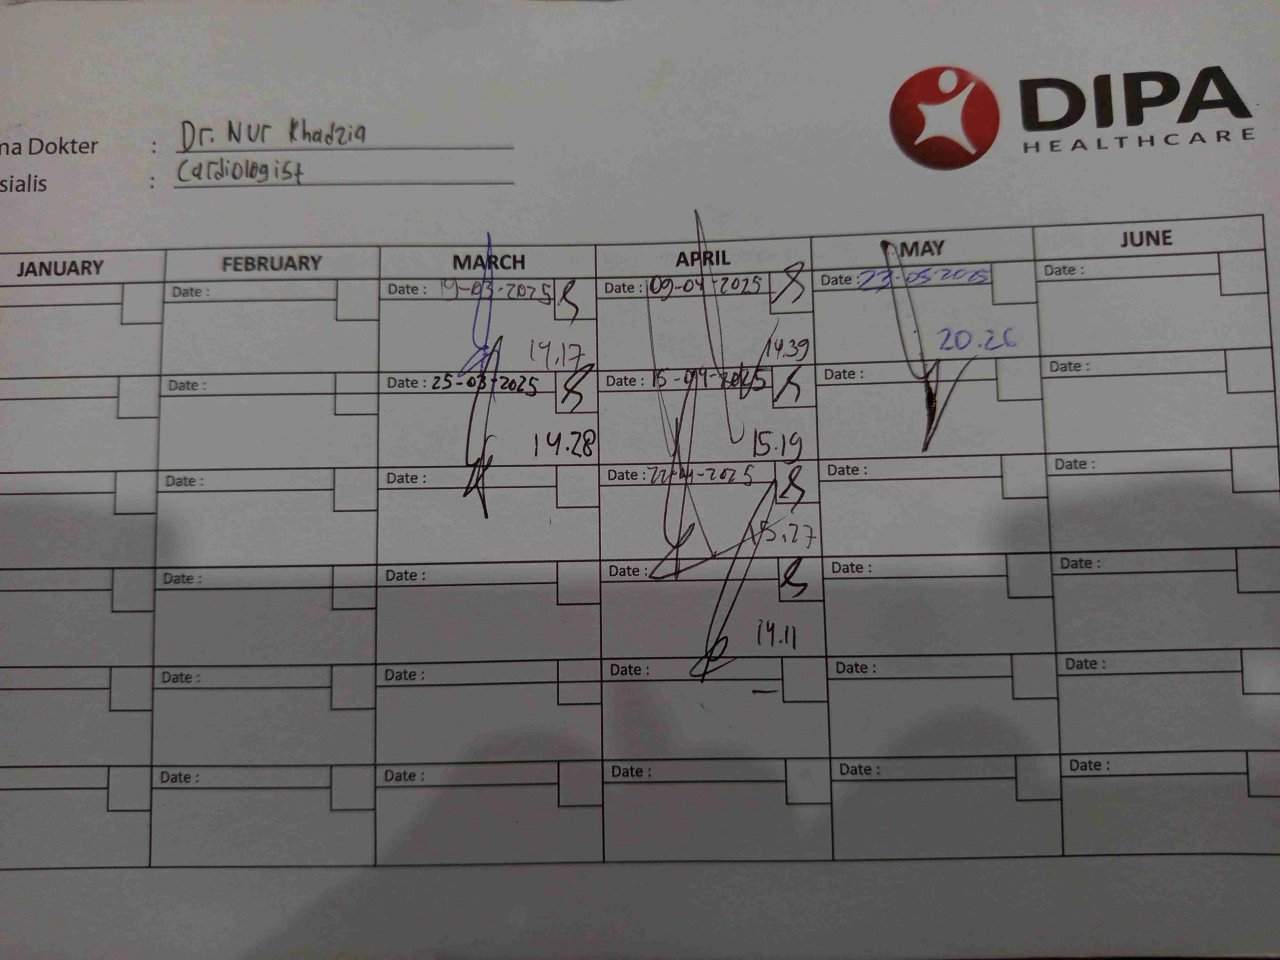 DIPA
HEALTHCARE
ma Dokter : Dr. Nur Khadzia
sialis : Cardiologist
JANUARY FEBRUARY MARCH APRIL MAY JUNE
Date : Date : 19-03-2025 Date : 09-04-2025 Date : 23-05-2025 Date :
14.17 14.39 20.26
Date : Date : 25-03-2025 Date : 15-04-2025 Date : Date :
14.28 15.19
Date : Date : Date : 22-04-2025 Date : Date :
15.27
Date : Date : Date : Date : Date :
14.11
Date : Date : Date : Date : Date :
Date : Date : Date : Date : Date :